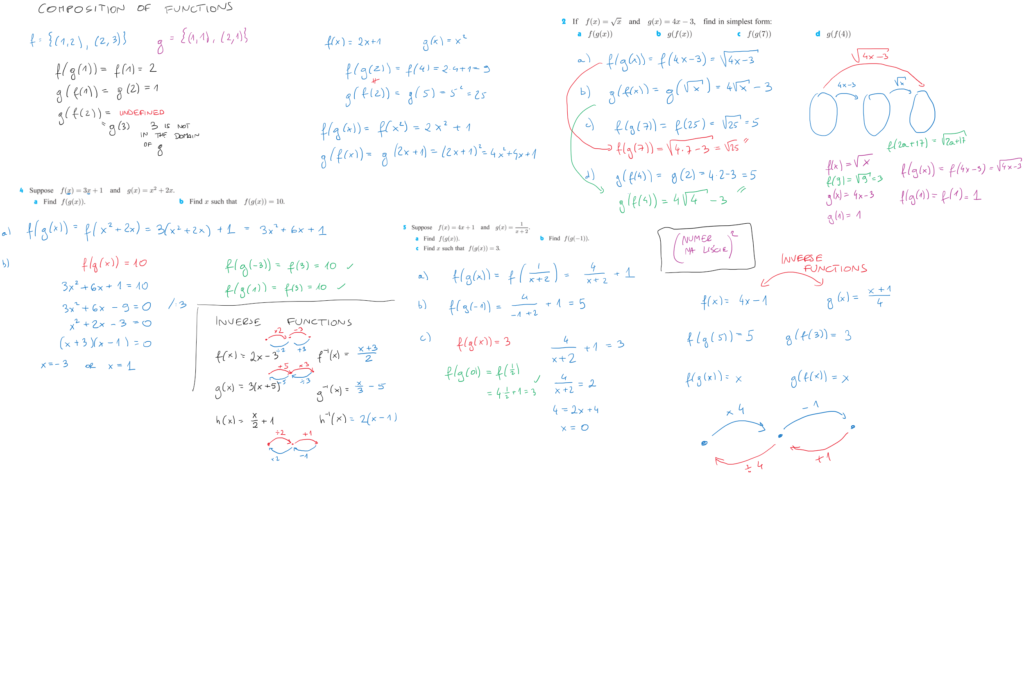 COMPOSITION OF FUNCTIONS
f = {(1,2), (2,3)} g = {(1,1), (2,1)}
f(g(1)) = f(1) = 2
g(f(1)) = g(2) = 1
g(f(2)) = UNDEFINED
= g(3) 3 IS NOT
IN THE DOMAIN
OF g
f(x) = 2x+1 g(x) = x²
f(g(2)) = f(4) = 2·4+1 = 9
g(f(2)) = g(5) = 5² = 25
f(g(x)) = f(x²) = 2x² + 1
g(f(x)) = g(2x+1) = (2x+1)² = 4x²+4x+1
2 If f(x) = √x and g(x) = 4x − 3, find in simplest form:
a f(g(x)) b g(f(x)) c f(g(7)) d g(f(4))
a.) f(g(x)) = f(4x-3) = √4x-3
b) g(f(x)) = g(√x) = 4√x - 3
c) f(g(7)) = f(25) = √25 = 5
f(g(7)) = √4·7-3 = √25"
d) g(f(4)) = g(2) = 4·2-3 = 5
g(f(4)) = 4√4 - 3 "
√4x-3
4x-3 √x
f(2a+17) = √2a+17
f(x) = √x
f(9) = √9 = 3
g(x) = 4x-3
g(1) = 1
f(g(x)) = f(4x-3) = √4x-3
f(g(1)) = f(1) = 1
4 Suppose f(x) = 3x + 1 and g(x) = x² + 2x.
a Find f(g(x)). b Find x such that f(g(x)) = 10.
a) f(g(x)) = f(x²+2x) = 3(x²+2x) + 1 = 3x²+6x+1
b) f(g(x)) = 10
3x²+6x+1 = 10
3x²+6x-9 = 0 /3
x²+2x-3 = 0
(x+3)(x-1) = 0
x=-3 OR x=1
f(g(-3)) = f(3) = 10 ✓
f(g(1)) = f(3) = 10 ✓
INVERSE FUNCTIONS
×2 -3
÷2 +3
f(x) = 2x-3 f⁻¹(x) = x+3/2
+5 ×3
-5 ÷3
g(x) = 3(x+5) g⁻¹(x) = x/3 - 5
h(x) = x/2 + 1 h⁻¹(x) = 2(x-1)
÷2 +1
×2 -1
5 Suppose f(x) = 4x + 1 and g(x) = 1/x+2.
a Find f(g(x)). b Find f(g(−1)).
c Find x such that f(g(x)) = 3.
a) f(g(x)) = f(1/x+2) = 4/x+2 + 1
b) f(g(-1)) = 4/-1+2 + 1 = 5
c) f(g(x)) = 3
f(g(0)) = f(1/2)
= 4 1/2 + 1 = 3 ✓
4/x+2 + 1 = 3
4/x+2 = 2
4 = 2x+4
x = 0
(NUMER NA LISCIE)²
INVERSE
FUNCTIONS
f(x) = 4x-1 g(x) = x+1/4
f(g(5)) = 5 g(f(3)) = 3
f(g(x)) = x g(f(x)) = x
×4 -1
÷4 +1